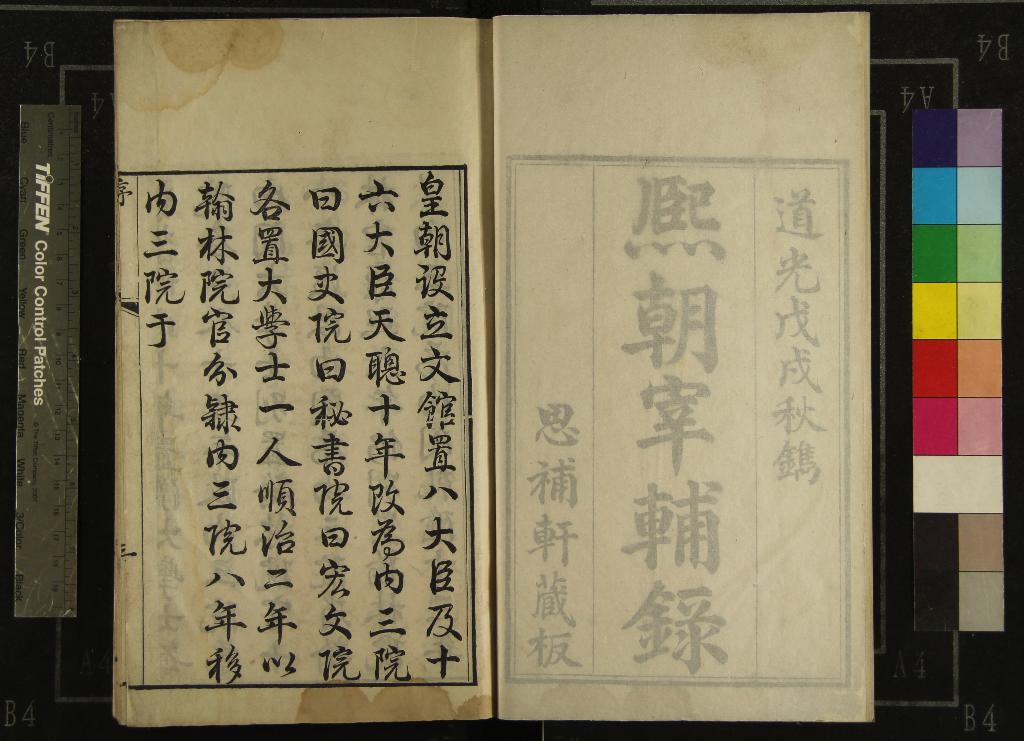 道光戊戌秋鐫
熙朝宰輔錄
思補軒藏板
皇朝设立文館置八大臣及十
六大臣天聰十年改為内三院
曰國史院曰秘書院曰宏文院
各置大學士一人順治二年以
翰林院官分隷内三院八年移
内三院于
序
三
TIFFEN Color Control Patches
Blue
Cyan
Green
Yellow
Red
Magenta
White
3/Color
Black
Centimetres
B4
B4
A4
A4
A4
A4
B4
B4